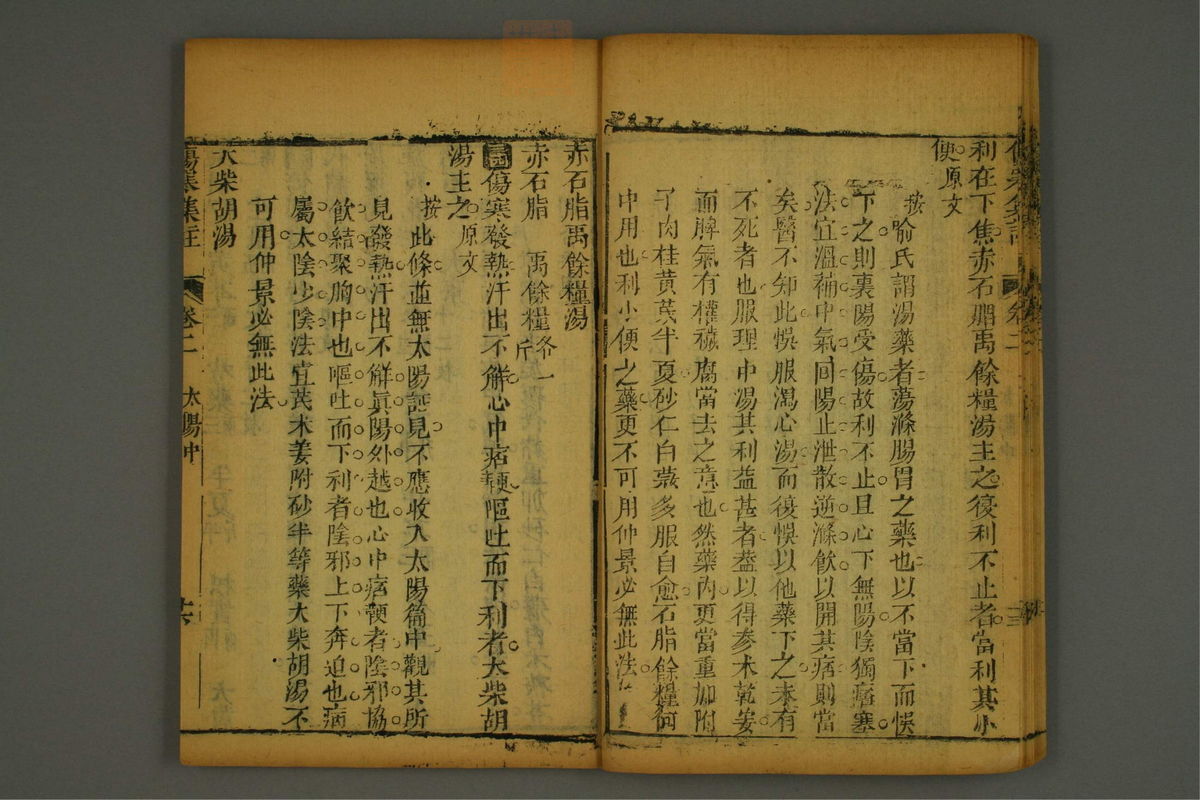 利在下焦赤石脂禹餘糧湯主之復利不止者當利其小
便原文
按喻氏謂湯藥者蕩滌腸胃之藥也以不當下而悞
下之則裏陽受傷故利不止且心下無陽陰獨痞塞
法宜溫補中氣回陽止泄散逆滌飮以開其痞則當
矣醫不知此悞服瀉心湯而復悞以他藥下之未有
不死者也服理中湯其利益甚者葢以得參术乾姜
而脾氣有權穢腐當去之意也然藥內更當重加附
子肉桂黃芪半夏砂仁白蔻多服自愈石脂餘糧何
中用也利小便之藥更不可用仲景必無此法
赤石脂禹餘糧湯
赤石脂 禹餘糧各一斤
傷寒發熱汗出不解心中痞鞕嘔吐而下利者大柴胡
湯主之原文
按此條並無太陽証見不應收入太陽篇中觀其所
見發熱汗出不解眞陽外越也心中痞鞕者陰邪協
飮結聚胸中也嘔吐而下利者陰邪上下奔迫也病
屬太陰少陰法宜芪术姜附砂半等藥大柴胡湯不
可用仲景必無此法
大柴胡湯
傷寒集註 卷二 太陽中 十六